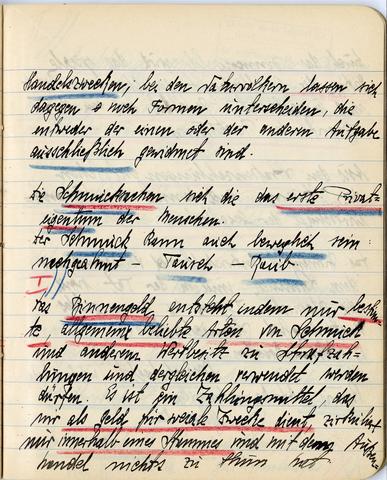 Handelszwecken; bei den Naturvölkern lassen sich
dagegen noch Formen unterscheiden, die
entweder der einen oder der anderen Aufgabe
ausschließlich gewidmet sind.
Die Schmucksachen sich die das erste Privat-
eigentum der Menschen.
Der Schmuck kann auch beweglich sein:
nachgeahmt – Tausch – Raub
I
Das Binnengeld entsteht indem nur bestim
te, allgemeine beliebte Arten von Schmuck
und anderem Wertbesitz zu Strafzah-
lungen und dergleichen verwendet werden
dürfen. Es ist ein Zahlungsmittel, das
nur als Geld für wenige Zwecke dient, zirkuliert
nur innerhalb eines Stammes und mit dem Außen-
handel nichts zu thun hat